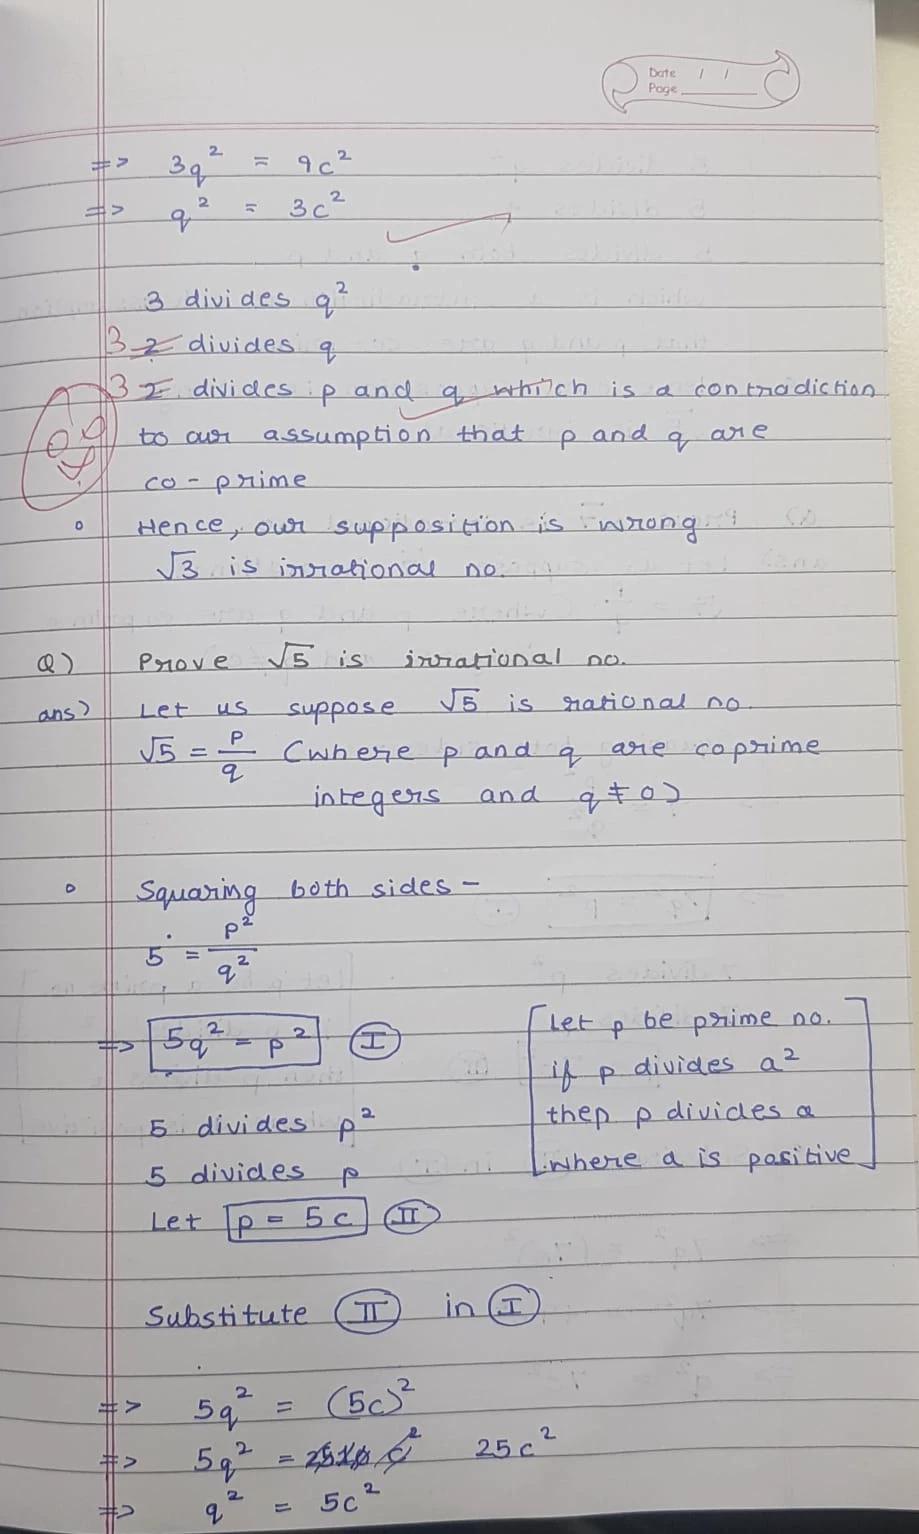 Date / /
Page
=> 3q² = 9c²
=> q² = 3c²
3 divides q²
3 2 divides q
3 2 divides p and q which is a contradiction
to our assumption that p and q are
co-prime
Hence, our supposition is wrong
√3 is irrational no.
Q) Prove √5 is irrational no.
ans) Let us suppose √5 is rational no.
√5 = p/q (where p and q are coprime
integers and q ≠ 0)
Squaring both sides –
5 = p²/q²
=> 5q² = p² I
[Let p be prime no.
if p divides a²
then p divides a
where a is positive]
5 divides p²
5 divides p
Let p = 5c II
Substitute II in I
=> 5q² = (5c)²
=> 5q² = 25c²
=> q² = 5c²